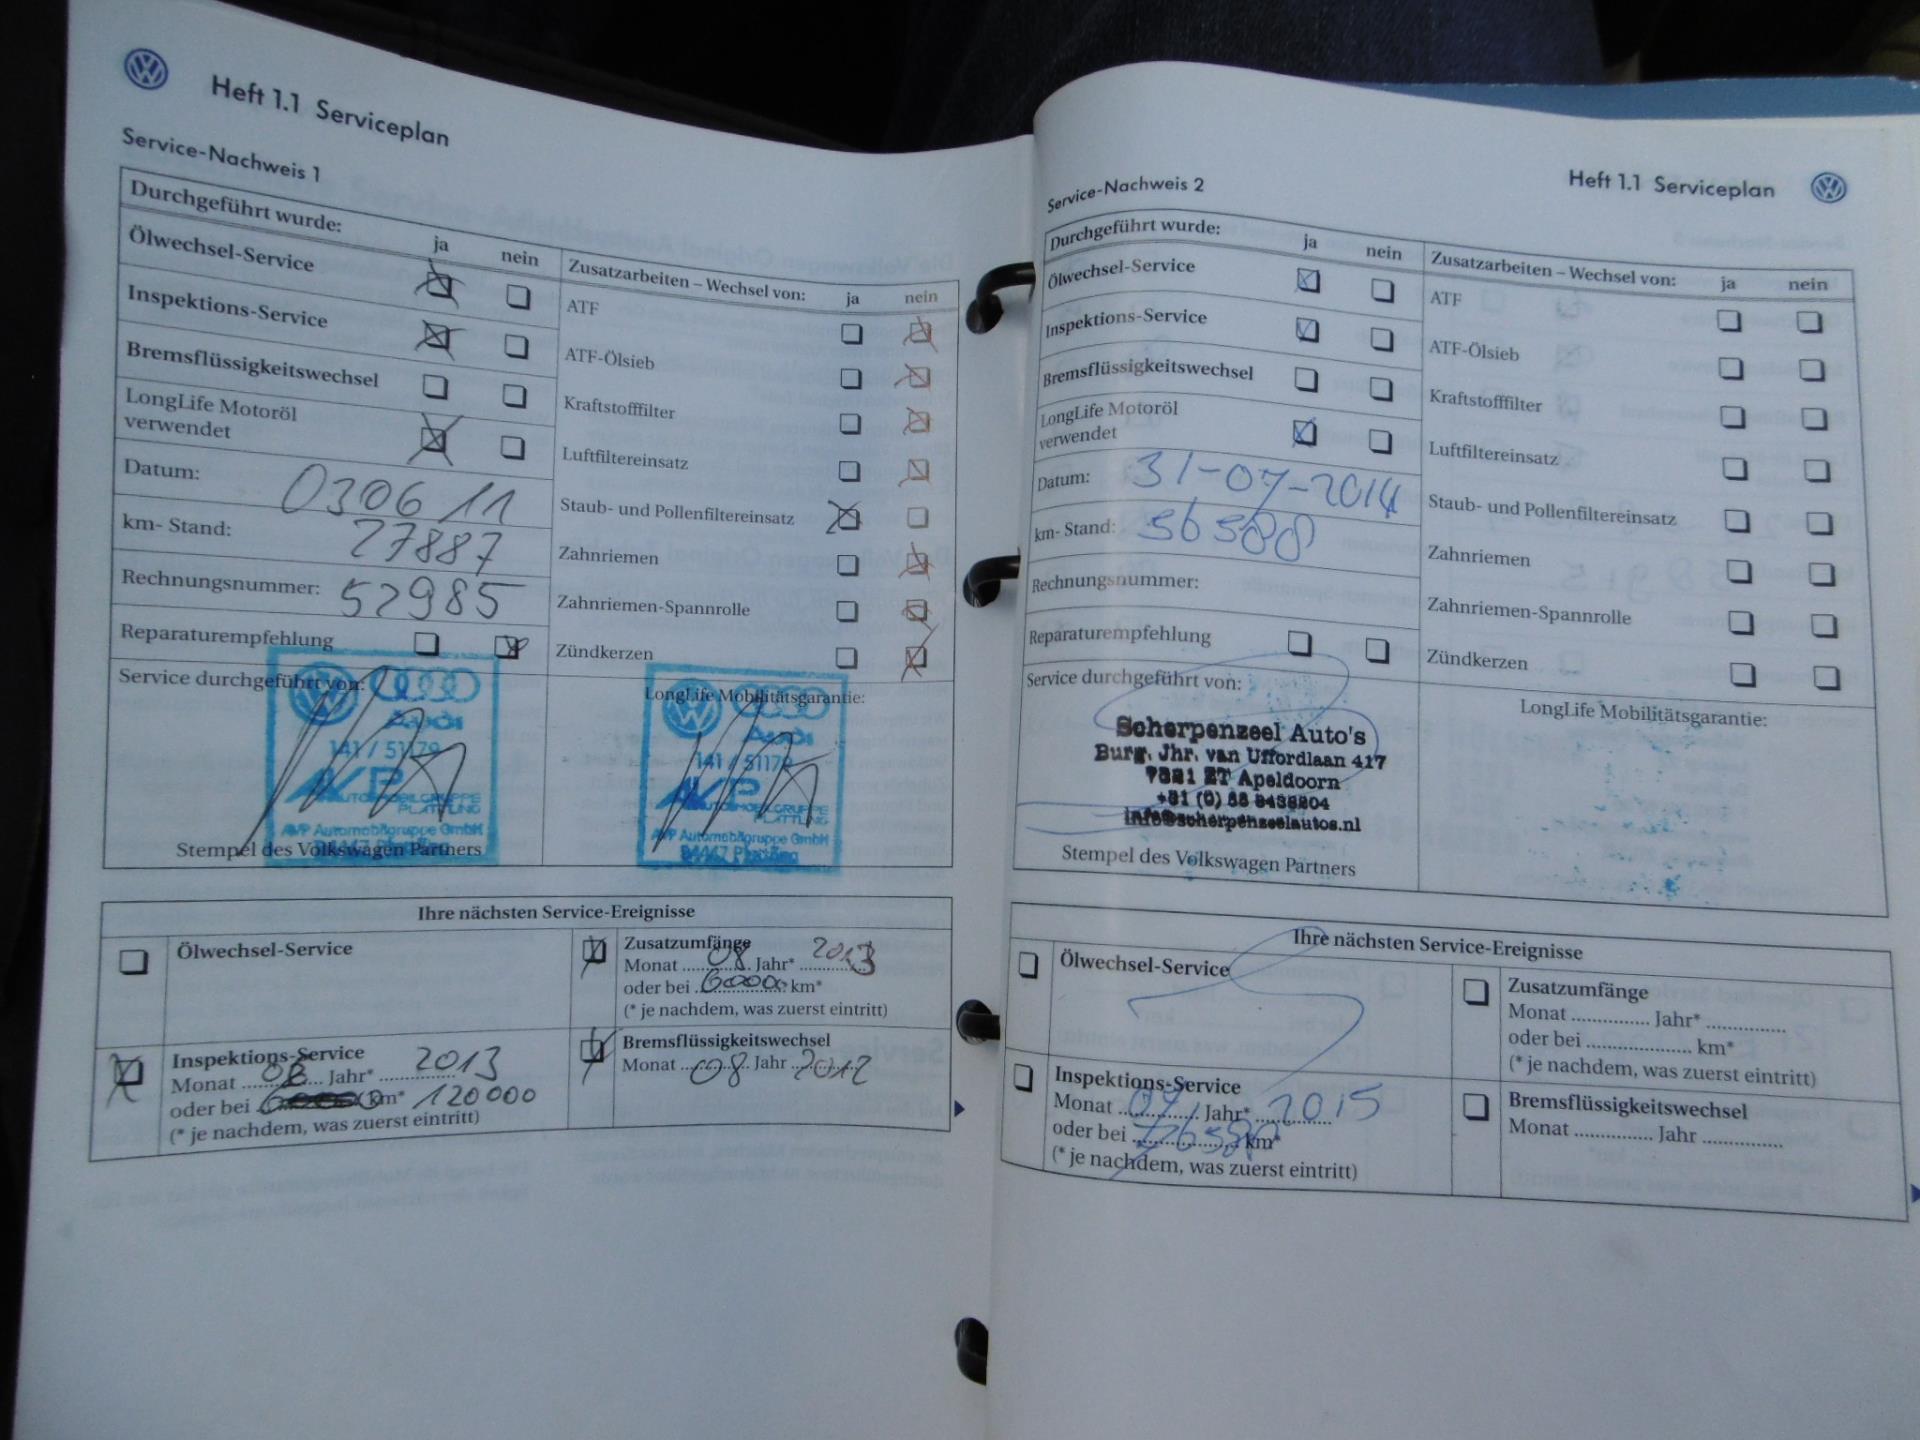 Heft 1.1 Serviceplan
Service-Nachweis 1
Durchgeführt wurde:
ja nein
Ölwechsel-Service
Inspektions-Service
Bremsflüssigkeitswechsel
LongLife Motoröl
verwendet
Datum: 030611
km- Stand: 27887
Rechnungsnummer: 52985
Reparaturempfehlung
Zusatzarbeiten – Wechsel von: ja nein
ATF
ATF-Ölsieb
Kraftstofffilter
Luftfiltereinsatz
Staub- und Pollenfiltereinsatz
Zahnriemen
Zahnriemen-Spannrolle
Zündkerzen
Service durchgeführt von:
Audi
141 / 51179
AVP
AUTOMOBILGRUPPE
PLATTLING
AVP Automobilgruppe GmbH
94447 Plattling
Stempel des Volkswagen Partners
LongLife Mobilitätsgarantie:
Audi
141 / 51179
AVP
AUTOMOBILGRUPPE
PLATTLING
AVP Automobilgruppe GmbH
94447 Plattling
Ihre nächsten Service-Ereignisse
Ölwechsel-Service
Zusatzumfänge
Monat 08 Jahr* 2013
oder bei 60000 km*
(* je nachdem, was zuerst eintritt)
Inspektions-Service
Monat 08 Jahr* 2013
oder bei km* 120000
(* je nachdem, was zuerst eintritt)
Bremsflüssigkeitswechsel
Monat 08 Jahr 2012
Heft 1.1 Serviceplan
Service-Nachweis 2
Durchgeführt wurde:
ja nein
Ölwechsel-Service
Inspektions-Service
Bremsflüssigkeitswechsel
LongLife Motoröl
verwendet
Datum: 31-07-2014
km- Stand: 56588
Rechnungsnummer:
Reparaturempfehlung
Zusatzarbeiten – Wechsel von: ja nein
ATF
ATF-Ölsieb
Kraftstofffilter
Luftfiltereinsatz
Staub- und Pollenfiltereinsatz
Zahnriemen
Zahnriemen-Spannrolle
Zündkerzen
Service durchgeführt von:
Scherpenzeel Auto's
Burg. Jhr. van Uffordlaan 417
Apeldoorn
info@scherpenzeelautos.nl
Stempel des Volkswagen Partners
LongLife Mobilitätsgarantie:
Ihre nächsten Service-Ereignisse
Ölwechsel-Service
Zusatzumfänge
Monat .............. Jahr* ..............
oder bei .................... km*
(* je nachdem, was zuerst eintritt)
Inspektions-Service
Monat 07 Jahr* 2015
oder bei 76580 km*
(* je nachdem, was zuerst eintritt)
Bremsflüssigkeitswechsel
Monat .............. Jahr ..............